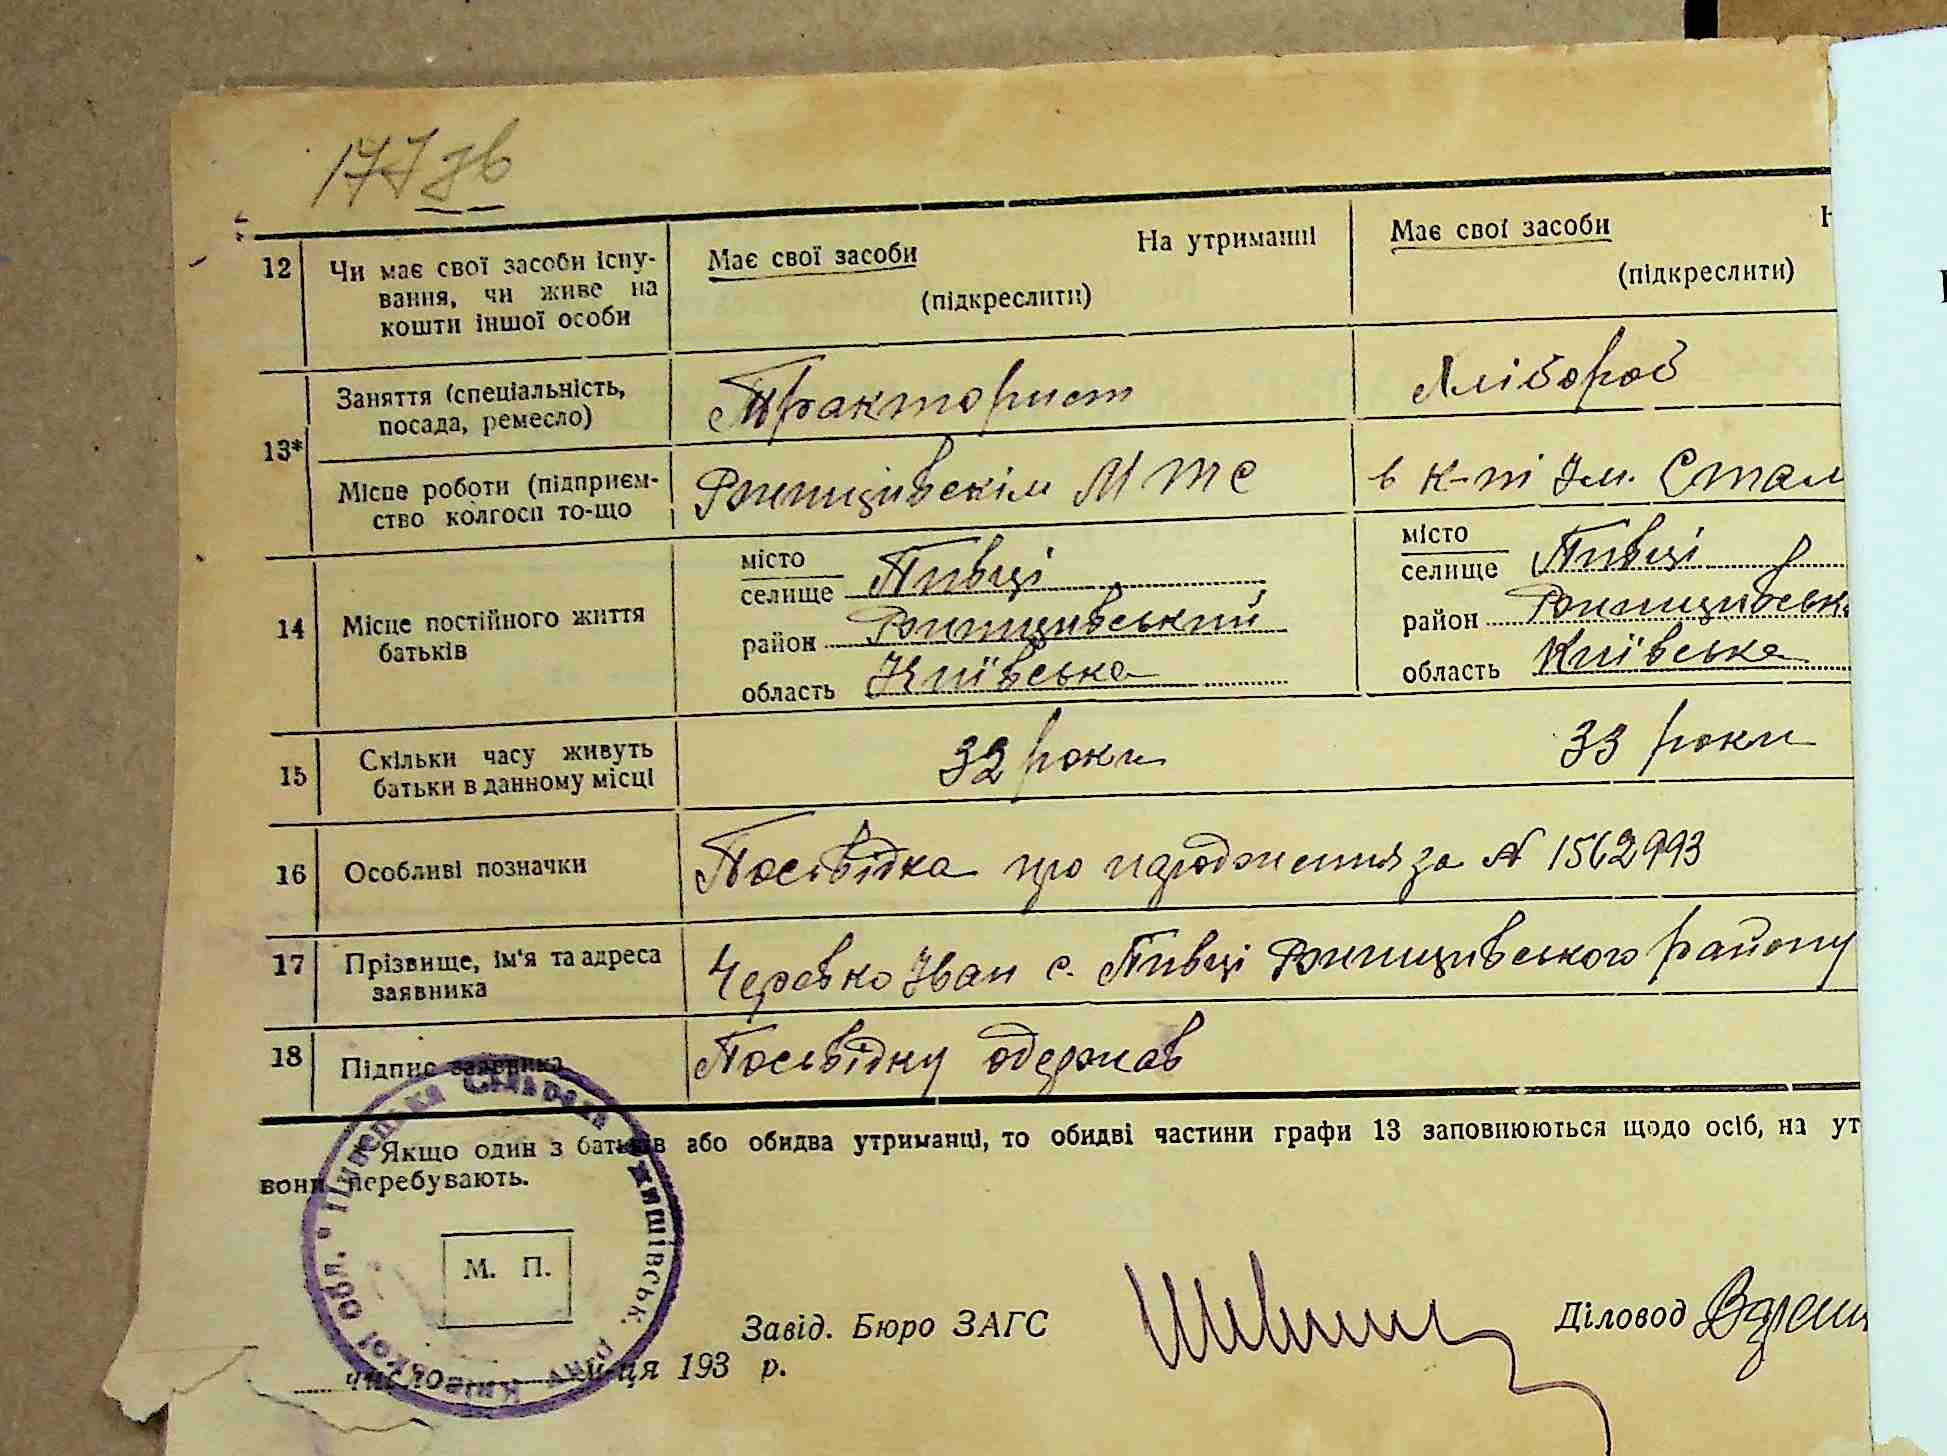 177 зв
12 Чи має свої засоби існу-
вання, чи живе на
кошти іншої особи
Має свої засоби На утриманні
(підкреслити)
Має свої засоби Н
(підкреслити)
13* Заняття (спеціальність,
посада, ремесло)
Тракторист
Хлібороб
Місце роботи (підприєм-
ство колгосп то-що
МТС
в к-пі Ім. Стал
14 Місце постійного життя
батьків
місто
селище Пивці
район
область Київська
місто
селище Пивці
район
область Київська
15 Скільки часу живуть
батьки в данному місці
32 роки
33 роки
16 Особливі позначки
Посвідка про народження за № 1562993
17 Прізвище, ім'я та адреса
заявника
Черевко Іван с. Пивці району
18 Підпис заявника
Посвідку одержав
Якщо один з батьків або обидва утриманці, то обидві частини графи 13 заповнюються щодо осіб, на ут
вони перебувають.
М. П.
Завід. Бюро ЗАГС
Діловод
193 р.
Пивецька Сільрада Київської Обл.